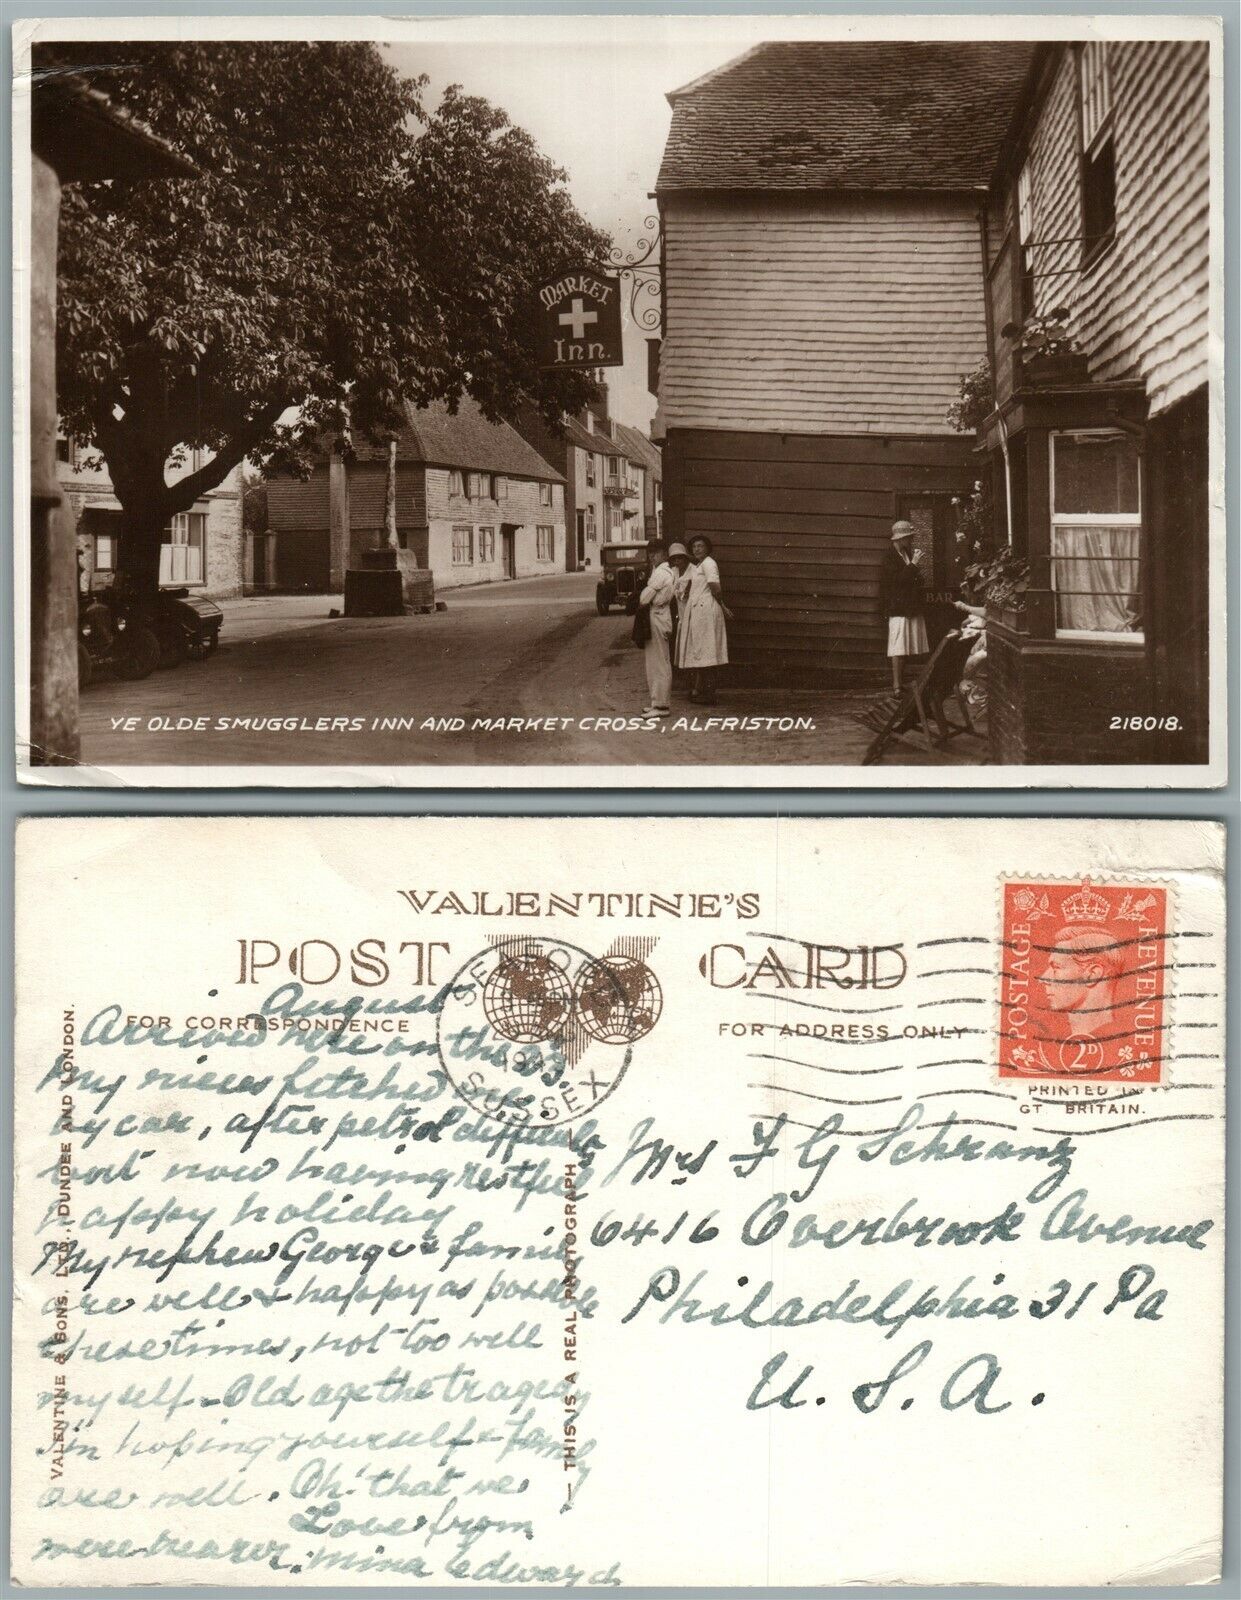 MARKET
Inn.
BAR
YE OLDE SMUGGLERS INN AND MARKET CROSS, ALFRISTON. 218018.
VALENTINE'S
POST CARD
FOR CORRESPONDENCE
FOR ADDRESS ONLY
SEAFORD
SUSSEX
POSTAGE REVENUE
2D
PRINTED IN
GT. BRITAIN.
VALENTINE & SONS, LTD., DUNDEE AND LONDON.
— THIS IS A REAL PHOTOGRAPH —
August
Arrived here on the 23.
My nieces fetched me
by car, after petrol
but now having restful
happy holiday
My nephew George & family
are well & happy as possible
these times, not too well
myself - Old age the tragedy
I'm hoping yourself & family
are well. Oh! that we
were nearer. Love from
Mina Edwards
Mrs F G Schranz
6416 Overbrook Avenue
Philadelphia 31 Pa
U. S. A.